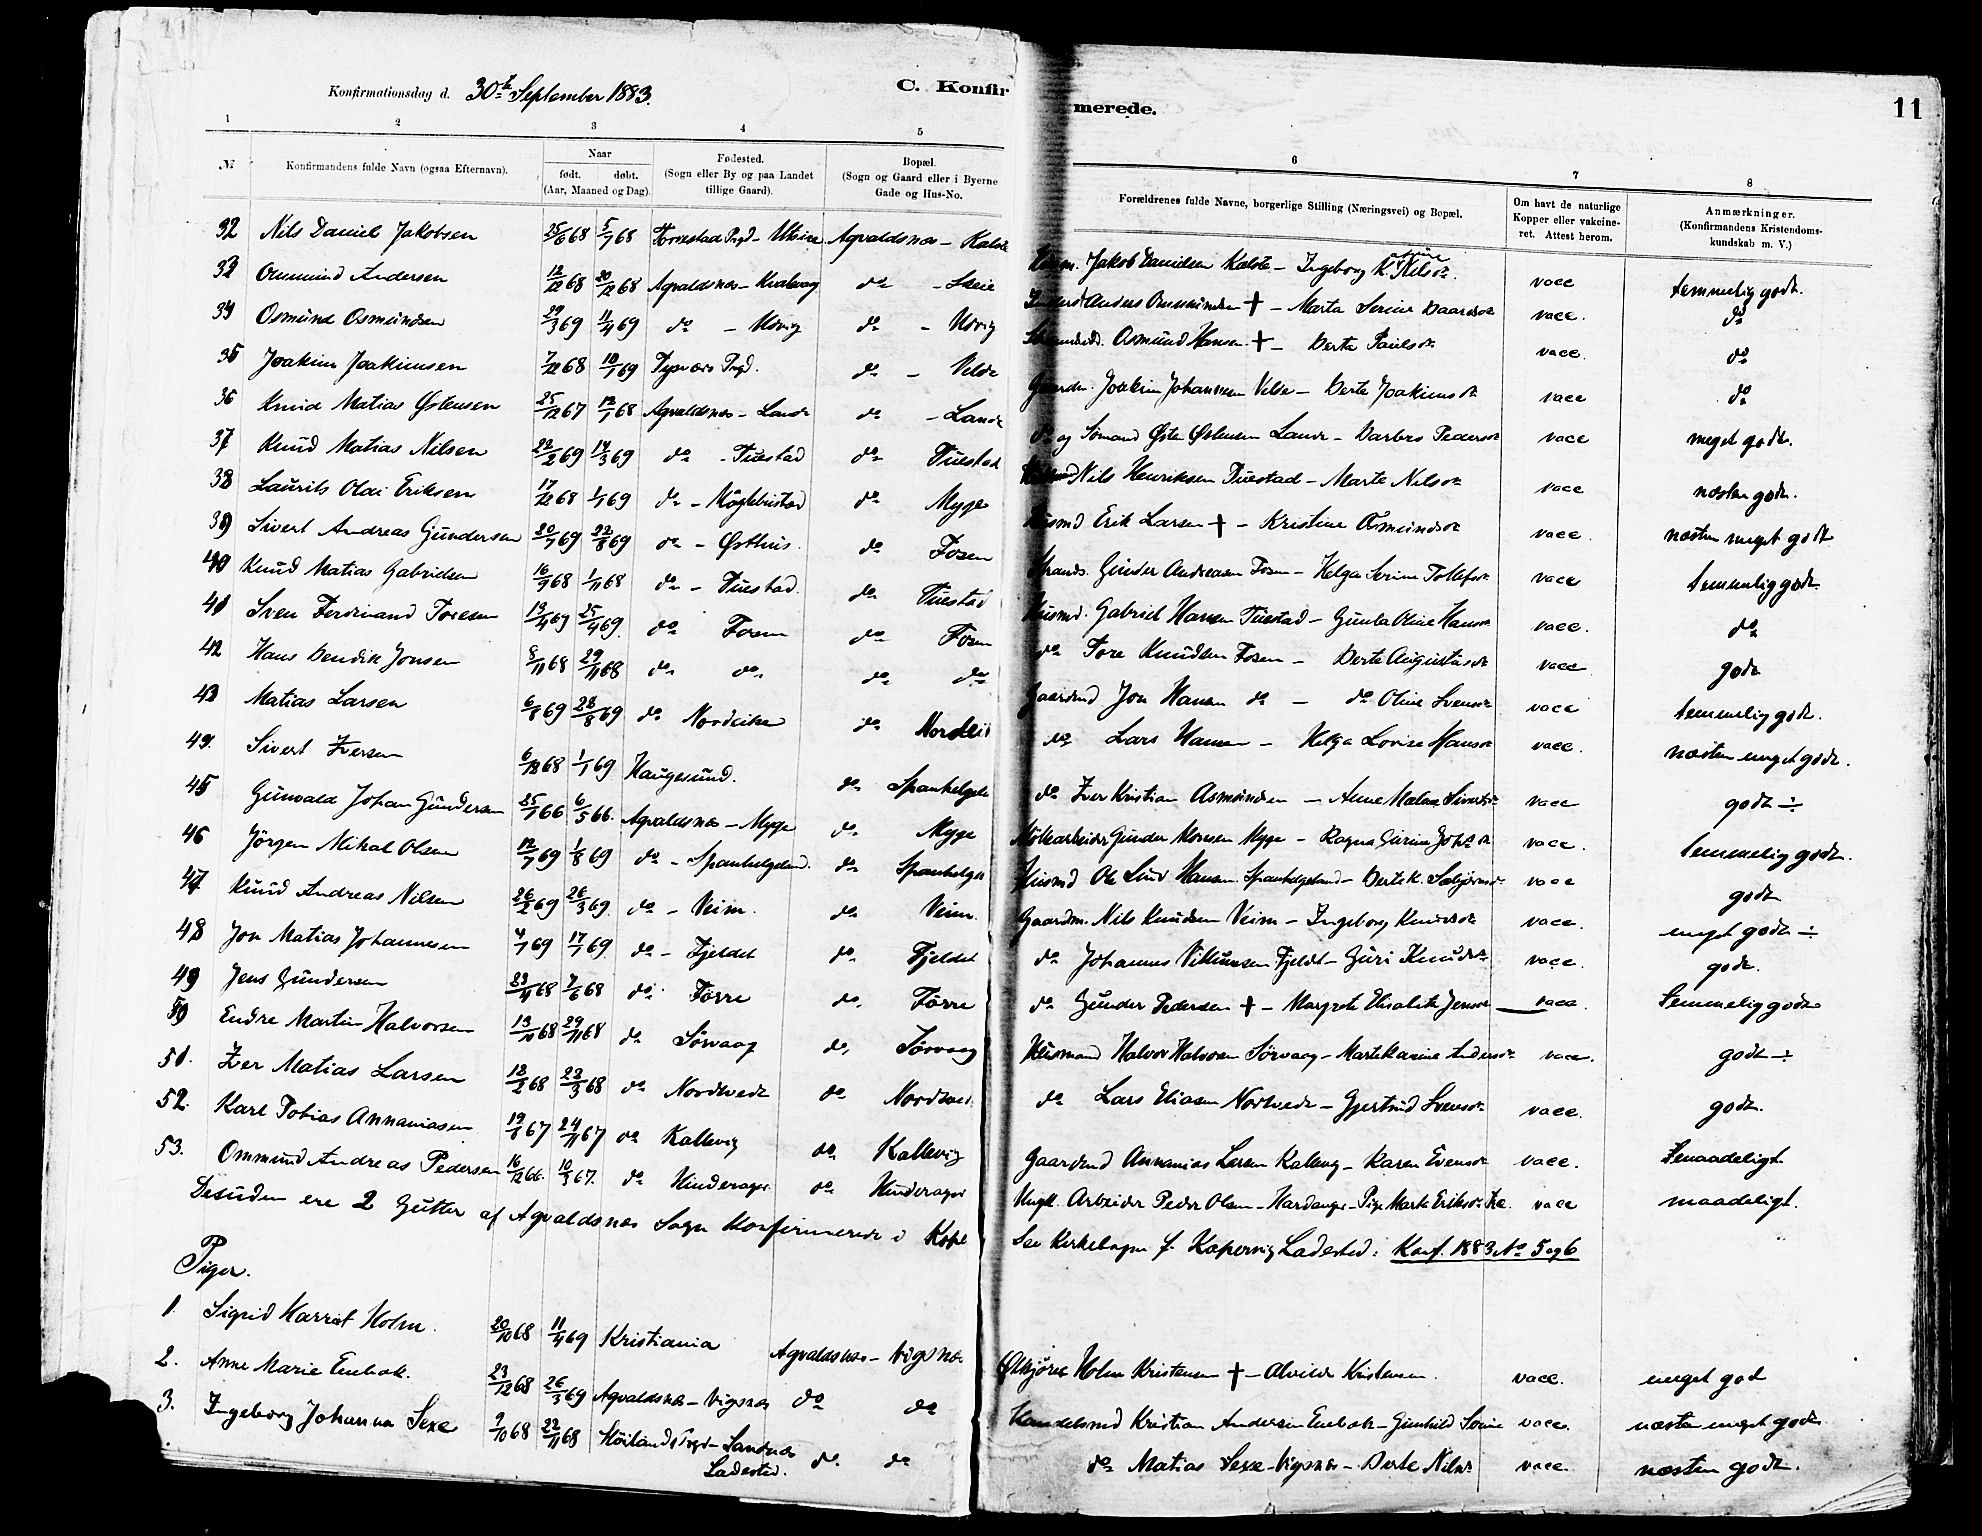 Konfirmationsdag d. 30te September 1883.
C. Konfir
merede.
11
1 2 3 4 5 6 7 8
№ Konfirmandens fulde Navn (ogsaa Efternavn). Naar født. døbt. (Aar, Maaned og Dag). Fødested. (Sogn eller By og paa Landet tillige Gaard). Bopæl. (Sogn og Gaard eller i Byerne Gade og Hus-No. Forældrenes fulde Navne, borgerlige Stilling (Næringsvei) og Bopæl. Om havt de naturlige Kopper eller vakcineret. Attest herom. Anmærkninger. (Konfirmandens Kristendomskundskab m. V.)
32 Nils Daniel Jakobsen 25/6 68 5/7 68 Agvaldsnæs - Jakob Danielsen Kalstø - Ingeborg K. Nilsdtr. vacc temmelig godt.
33 Ommund Andersen 12/12 68 20/12 68 Agvaldsnæs - Kvalavåg do - Skeie Anders Ommundsen † - Marta Serine Baardsdtr vacc. do
34 Osmund Osmundsen 29/3 69 11/4 69 do - Utvig do - Utvig Osmund Hansen † - Berta Paulsdtr vacc. do
35 Joakim Joakimsen 7/12 68 10/1 69 Tysvær Prgd. do - Velde Gaardm. Joakim Johannesen Velde - Berte Joakimsdtr vacc do
36 Knud Matias Østensen 25/12 67 12/1 68 Agvaldsnæs - Lande do - Lande do og Sømand Østen Østensen Lande - Barbro Pedersdtr vacc meget godt.
37 Knud Matias Nilsen 22/2 69 14/3 69 do - Tuestad do Tuestad Nils Henriksen Tuestad - Marte Nilsdtr vacc næsten godt.
38 Laurits Olai Eriksen 17/12 68 1/1 69 do - Møglebustad do Myge Husmd Erik Larsen † - Kristine Osmundsdtr vacc. næsten meget godt
39 Sivert Andreas Gundersen 20/7 69 22/8 69 do - Østhus. do Fosen Strands. Gunder Andreasen Fosen - Helga Serine Tollefsdtr vacc temmelig godt.
40 Knud Matias Gabrielsen 16/9 68 1/11 68 do - Tuestad. do Tuestad Husmd. Gabriel Hansen Tuestad - Gunla Oline Hansdtr vacc. do
41 Sven Ferdinand Toresen 13/4 69 25/4 69. do Fosen do Fosen do Tore Knudsen Fosen - Berte Augustasdtr vacc godt
42 Hans Bendik Jonsen 8/11 68 29/11 68 do do do do Gaardmd Jon Hansen do - do Oline Svensdtr vacc temmelig godt.
43 Matias Larsen 6/8 69 28/8 69 do Nordeike do Nordeik do Lars Hansen - Helga Lovise Hansdtr vacc. næsten meget godt.
44. Sivert Iversen 6/12 68 1/1 69 Haugesund. do Spanhelgela do Iver Kristian Asmundsen - Anne Malene Sivertsdtr vacc godt ÷
45 Gunvald Johan Gundersen 25/1 66 6/5 66. Agvaldsnæs - Myge do Myge Gunder Monsen Myge - Ragna Garine vacc. temmelig godt.
46 Jörgen Mikal Olsen 12/7 69 1/8 69 do - Spanhelgeland. do Spanhelgel Husmd Ole Hansen Spanhelgeland - Berte K. vacc godt
47 Knud Andreas Nilsen 26/2 69 26/3 69. do - Veim. do Veim. Gaardm. Nils Knudsen Veim - Ingeborg Knudsdtr vacc. meget godt ÷
48 Jon Matias Johannesen 4/1 69 17/1 69. do - Fjeldet do Fjeldet do Johannes Villumsen Fjeldt - Guri Knudsdtr vacc. godt.
49 Jens Gundersen 23/4 68 7/6 68 do Førre do Førre do Gunder Pedersen † - Margrete Elisabeth Jensdtr vacc. temmelig godt
50 Endre Martin Halvorsen 13/10 68 29/11 68 do Sörvaag do Sörvaag Husmand Halvor Halvorsen Sörvaag - Marte Karine Andersdtr vacc. godt ÷
51. Iver Matias Larsen 18/2 68 22/3 68 do Nordtvedt do Nordtved do Lars Eliasen Nortvedt - Gjertrud Svensdtr vacc. godt.
52. Karl Tobias Annaniasen 19/8 67 24/11 67 do Kallevig do Kallevig Gaardmd Annanias Larsen Kallevig - Karen Evensdtr vacc. temaadeligt
53. Ommund Andreas Pedersen 16/12 66. 10/3 67. do Hinderager do Hinderager Ungk. Arbeider Peder Olsen - Hardanger - Pige Marta Eriksdtr vacc maadeligt.
Desuden ere 2 Gutter af Agvaldsnæs Sogn Konfirmerede i Kop
See Kirkebogen f. Kopervig Ladested: Konf. 1883 No 5 og 6
Piger.
1. Sigrid Harriet Holm. 20/10 68 11/4 69 Kristiania Agvaldsnæs - Vigsnæs Holm Kristensen † - Alvilde Kristensen. vacc. meget godt
2. Anne Marie Enebak. 23/12 68 26/3 69 Agvaldsnæs - Vigsnæs do do Handelsmd Kristian Andersen Enebak - Gunhild vacc. næsten meget godt
3. Ingeborg Johanna Sexe 9/10 68 22/11 68 Høilands Prgd - Sandnæs Ladested. do. do do Matias Sexe - Vigsnæs - Berte Nilsdtr vacc. næsten godt.